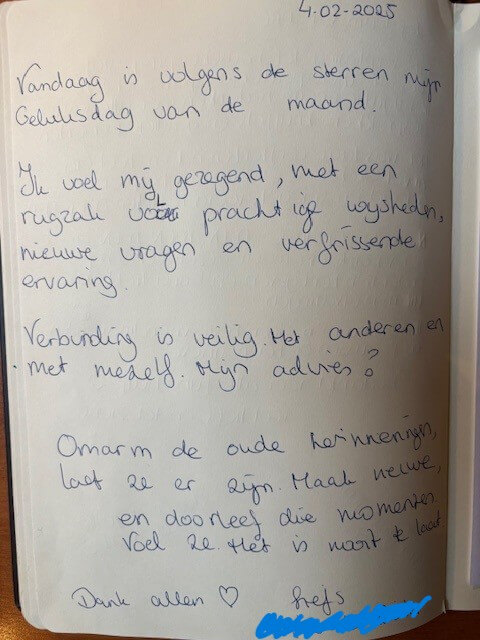 4-02-2025
Vandaag is volgens de sterren mijn
Geluksdag van de maand.
Ik voel mij gezegend, met een
rugzak vol prachtige wijsheden,
nieuwe vragen en verfrissende
ervaring.
Verbinding is veilig. Met anderen en
met mezelf. Mijn advies?
Omarm de oude herinneringen,
laat ze er zijn. Maak nieuwe,
en doorleef die momenten
Voel ze. Het is nooit te laat
Dank allen ♡ Liefs